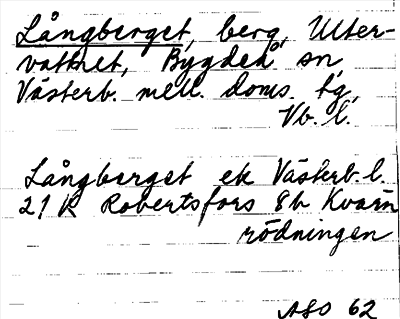 Långberget, berg, Utter-
vattnet, Bygdeå sn,
Västerb. mell. doms. tg,
Vb. l.
Långberget ek Västerb. l.
21 K Robertsfors 8b Kvarn
rödningen
ASO 62